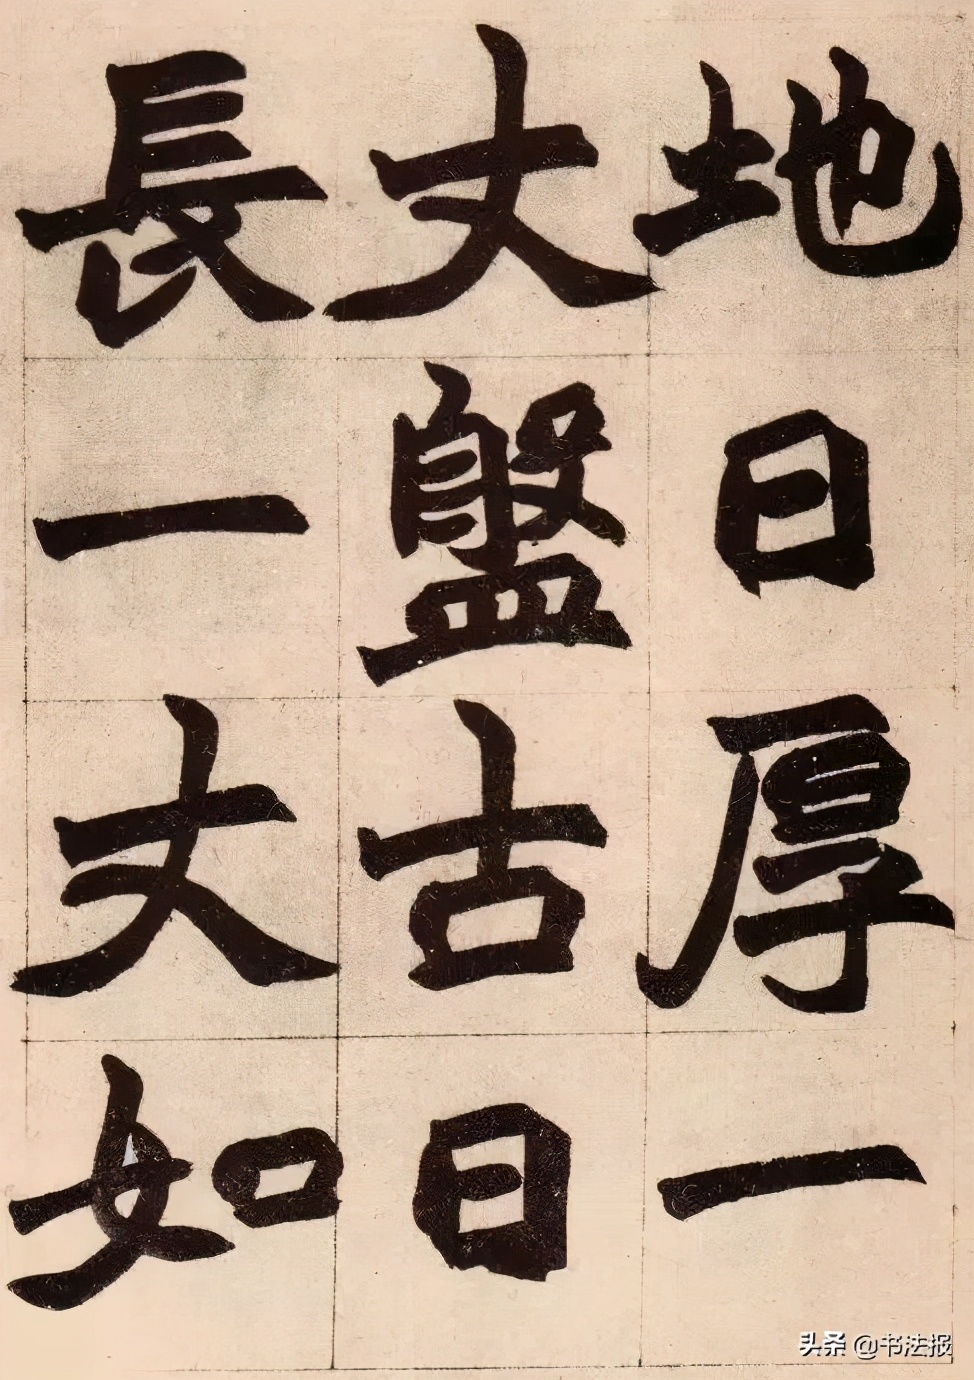 地日厚一
丈盤古日
長一丈如
头条 @书法报